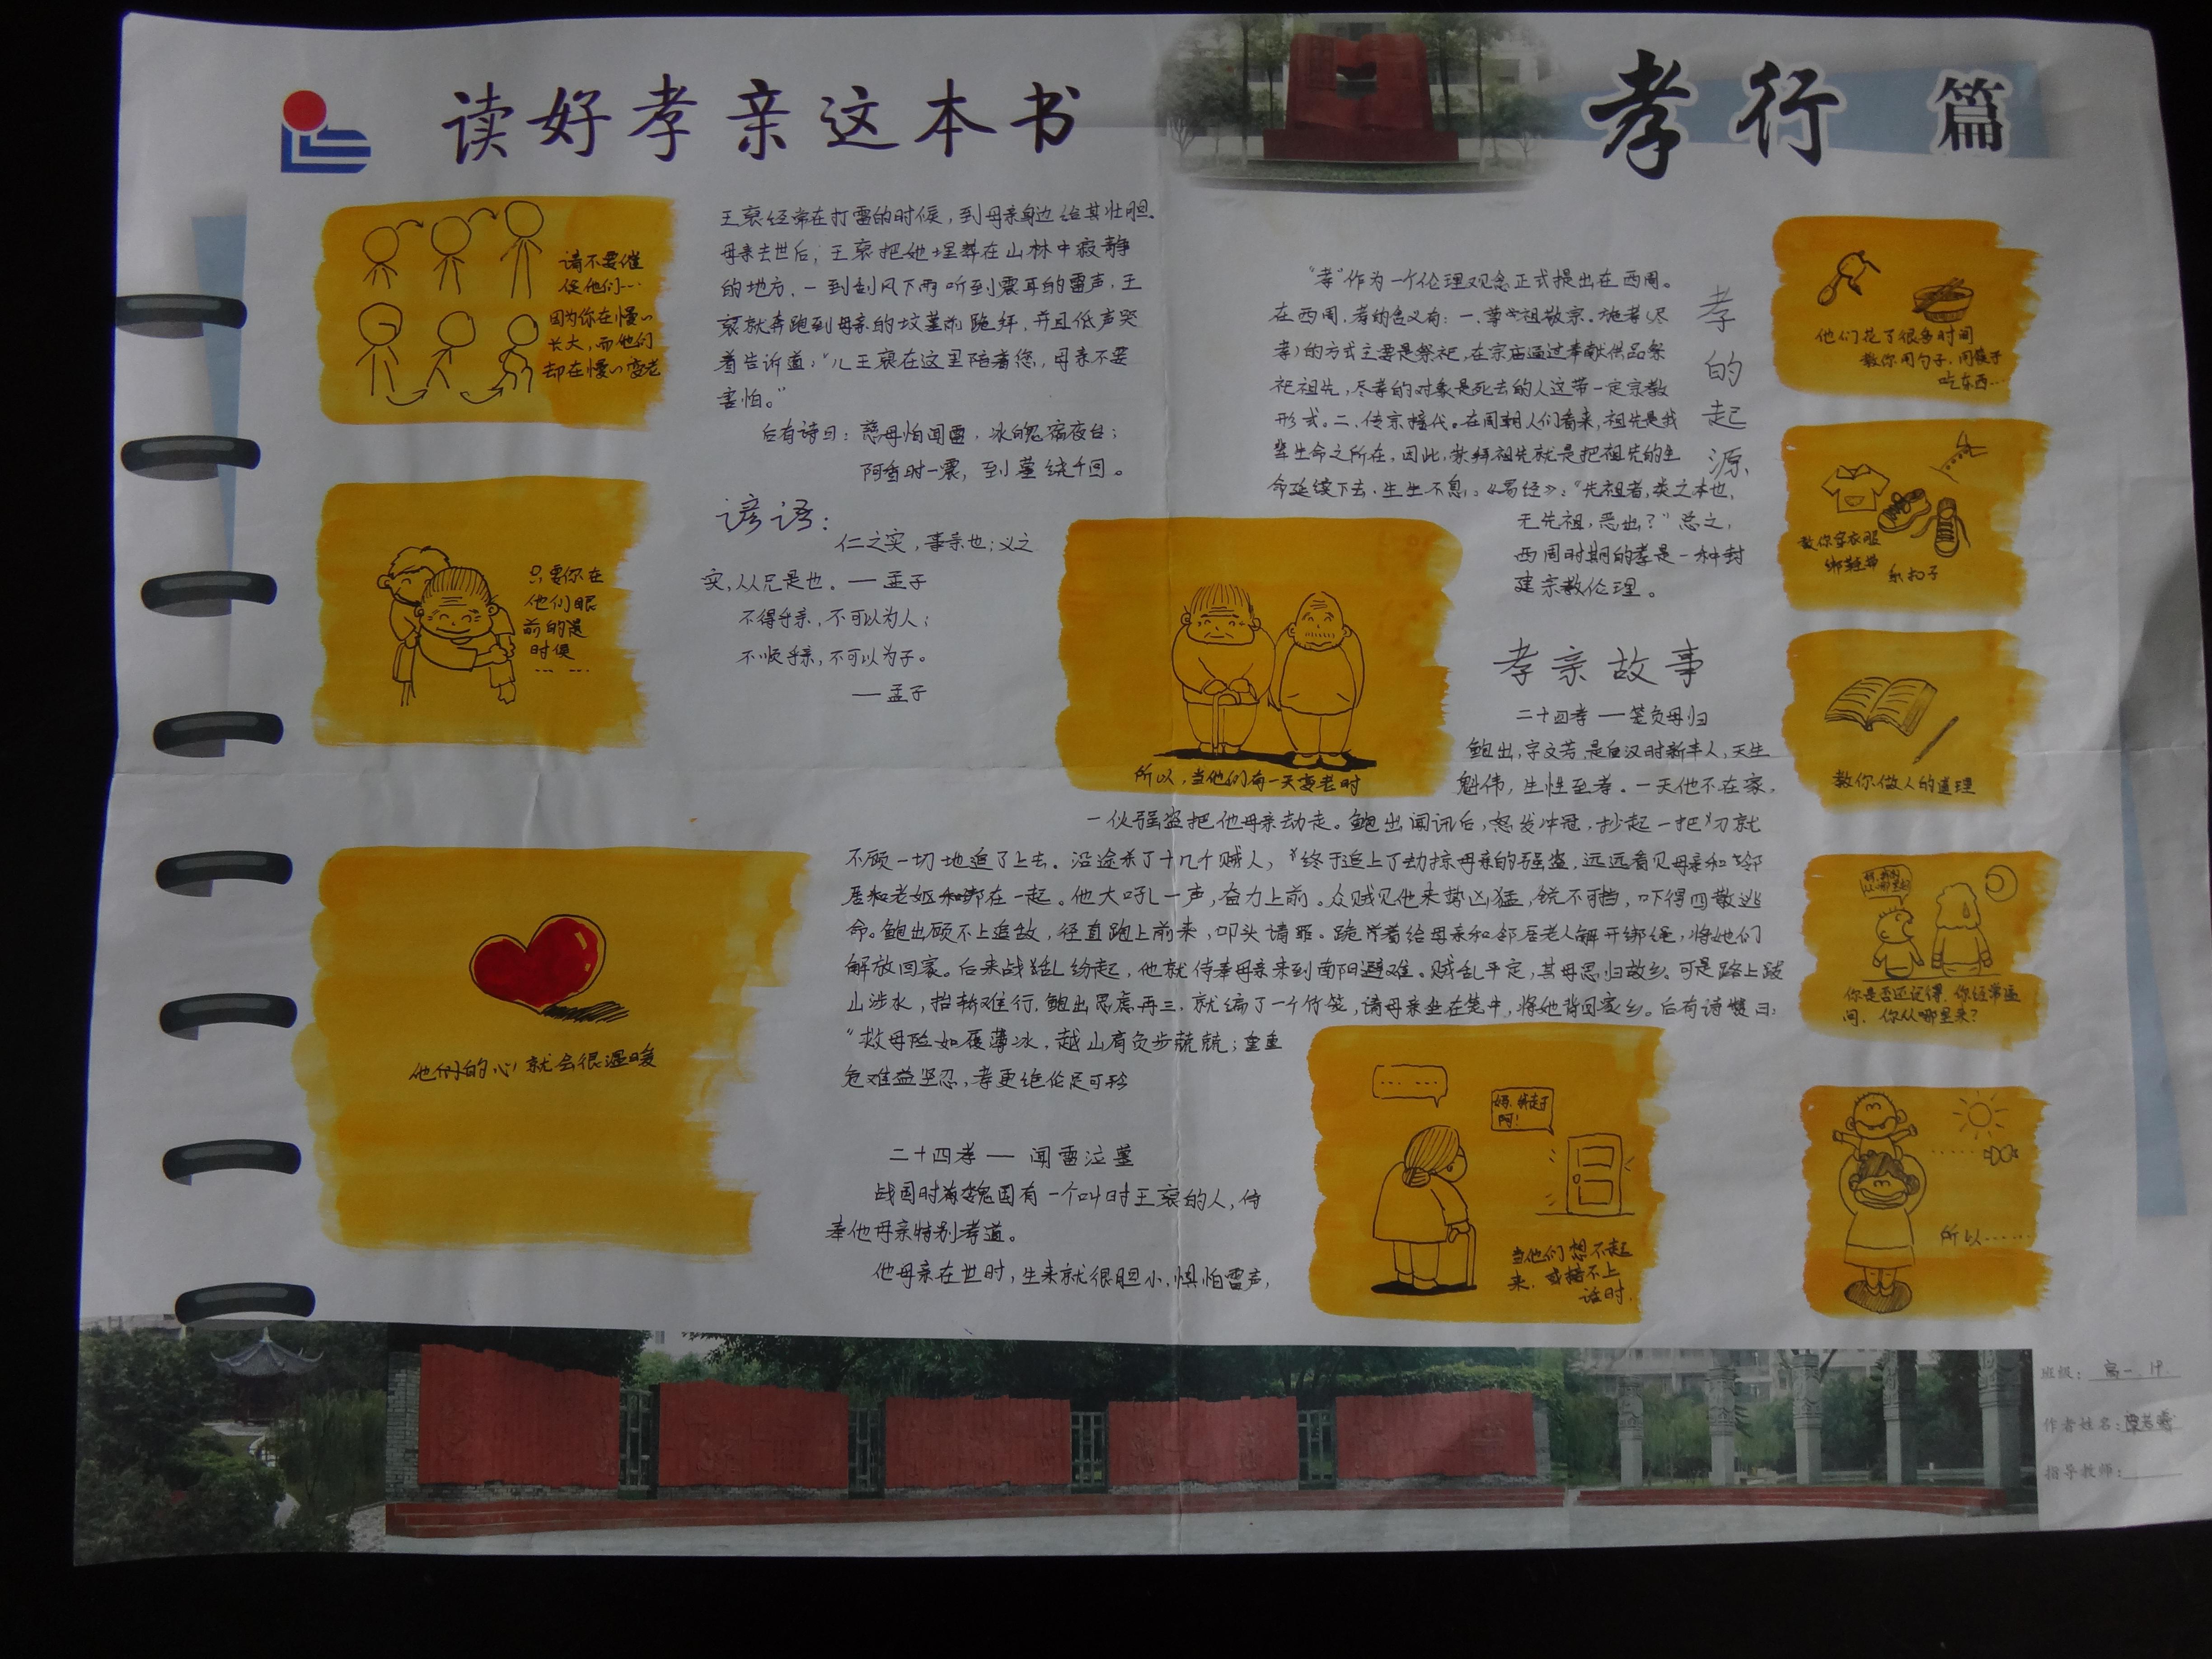 读好孝亲这本书
孝行 篇
请不要催
促他们…
因为你在慢慢
长大，而他们
却在慢慢变老
只要你在
他们眼
前的是
时候
他们的心就会很温暖
王裒经常在打雷的时候，到母亲身边给其壮胆。
母亲去世后，王裒把她埋葬在山林中寂静
的地方。一到刮风下雨听到震耳的雷声，王
裒就奔跑到母亲的坟墓前跪拜，并且低声哭
着告诉道：“儿王裒在这里陪着您，母亲不要
害怕。”
后有诗曰：慈母怕闻雷，冰魄宿夜台；
阿香时一震，到墓绕千回。
谚语：
仁之实，事亲也；义之
实，从兄是也。—孟子
不得乎亲，不可以为人；
不顺乎亲，不可以为子。
—孟子
孝的起源
“孝”作为一个伦理观念正式提出在西周。
在西周，孝的含义有：一、尊祖敬宗。施孝（尽
孝）的方式主要是祭祀，在宗庙通过奉献供品祭
祀祖先，尽孝的对象是死去的人这带一定宗教
形式。二、传宗接代。在周朝人们看来，祖先是我
辈生命之所在，因此，崇拜祖先就是把祖先的生
命延续下去，生生不息。《易经》：“先祖者，类之本也，
无先祖，恶出？”总之，
西周时期的孝是一种封
建宗教伦理。
所以，当他们有一天变老时
孝亲故事
二十四孝—笼负母归
鲍出，字文芳，是自汉时新丰人，天生
魁伟，生性至孝。一天他不在家，
一伙强盗把他母亲劫走。鲍出闻讯后，怒发冲冠，抄起一把刀就
不顾一切地追了上去。沿途杀了十几个贼人，终于追上了劫掠母亲的强盗，远远看见母亲和邻
居老妪绑在一起。他大吼一声，奋力上前。众贼见他来势凶猛，锐不可挡，吓得四散逃
命。鲍出顾不上追敌，径直跑上前来，叩头请罪。跪着给母亲和邻居老人解开绑绳，将她们
解放回家。后来战乱纷起，他就侍奉母亲来到南阳避难。贼乱平定，其母思归故乡。可是路上跋
山涉水，抬轿难行，鲍出思虑再三，就编了一个竹笼，请母亲坐在笼中，将她背回家乡。后有诗赞曰：
“救母险如履薄冰，越山肩负步兢兢；重重
危难益坚忍，孝更绝伦足可矜
二十四孝—闻雷泣墓
战国时魏国有一个叫时王裒的人，侍
奉他母亲特别孝道。
他母亲在世时，生来就很胆小，惧怕雷声，
妈，我走了
啊！
当他们想不起
来，或接不上
话时.
他们花了很多时间
教你用勺子、用筷子
吃东西…
教你穿衣服
绑鞋带
系扣子
教你做人的道理
你是否还记得，你经常逼
问，你从哪里来？
所以……
班级：高一.19.
作者姓名：
指导教师：